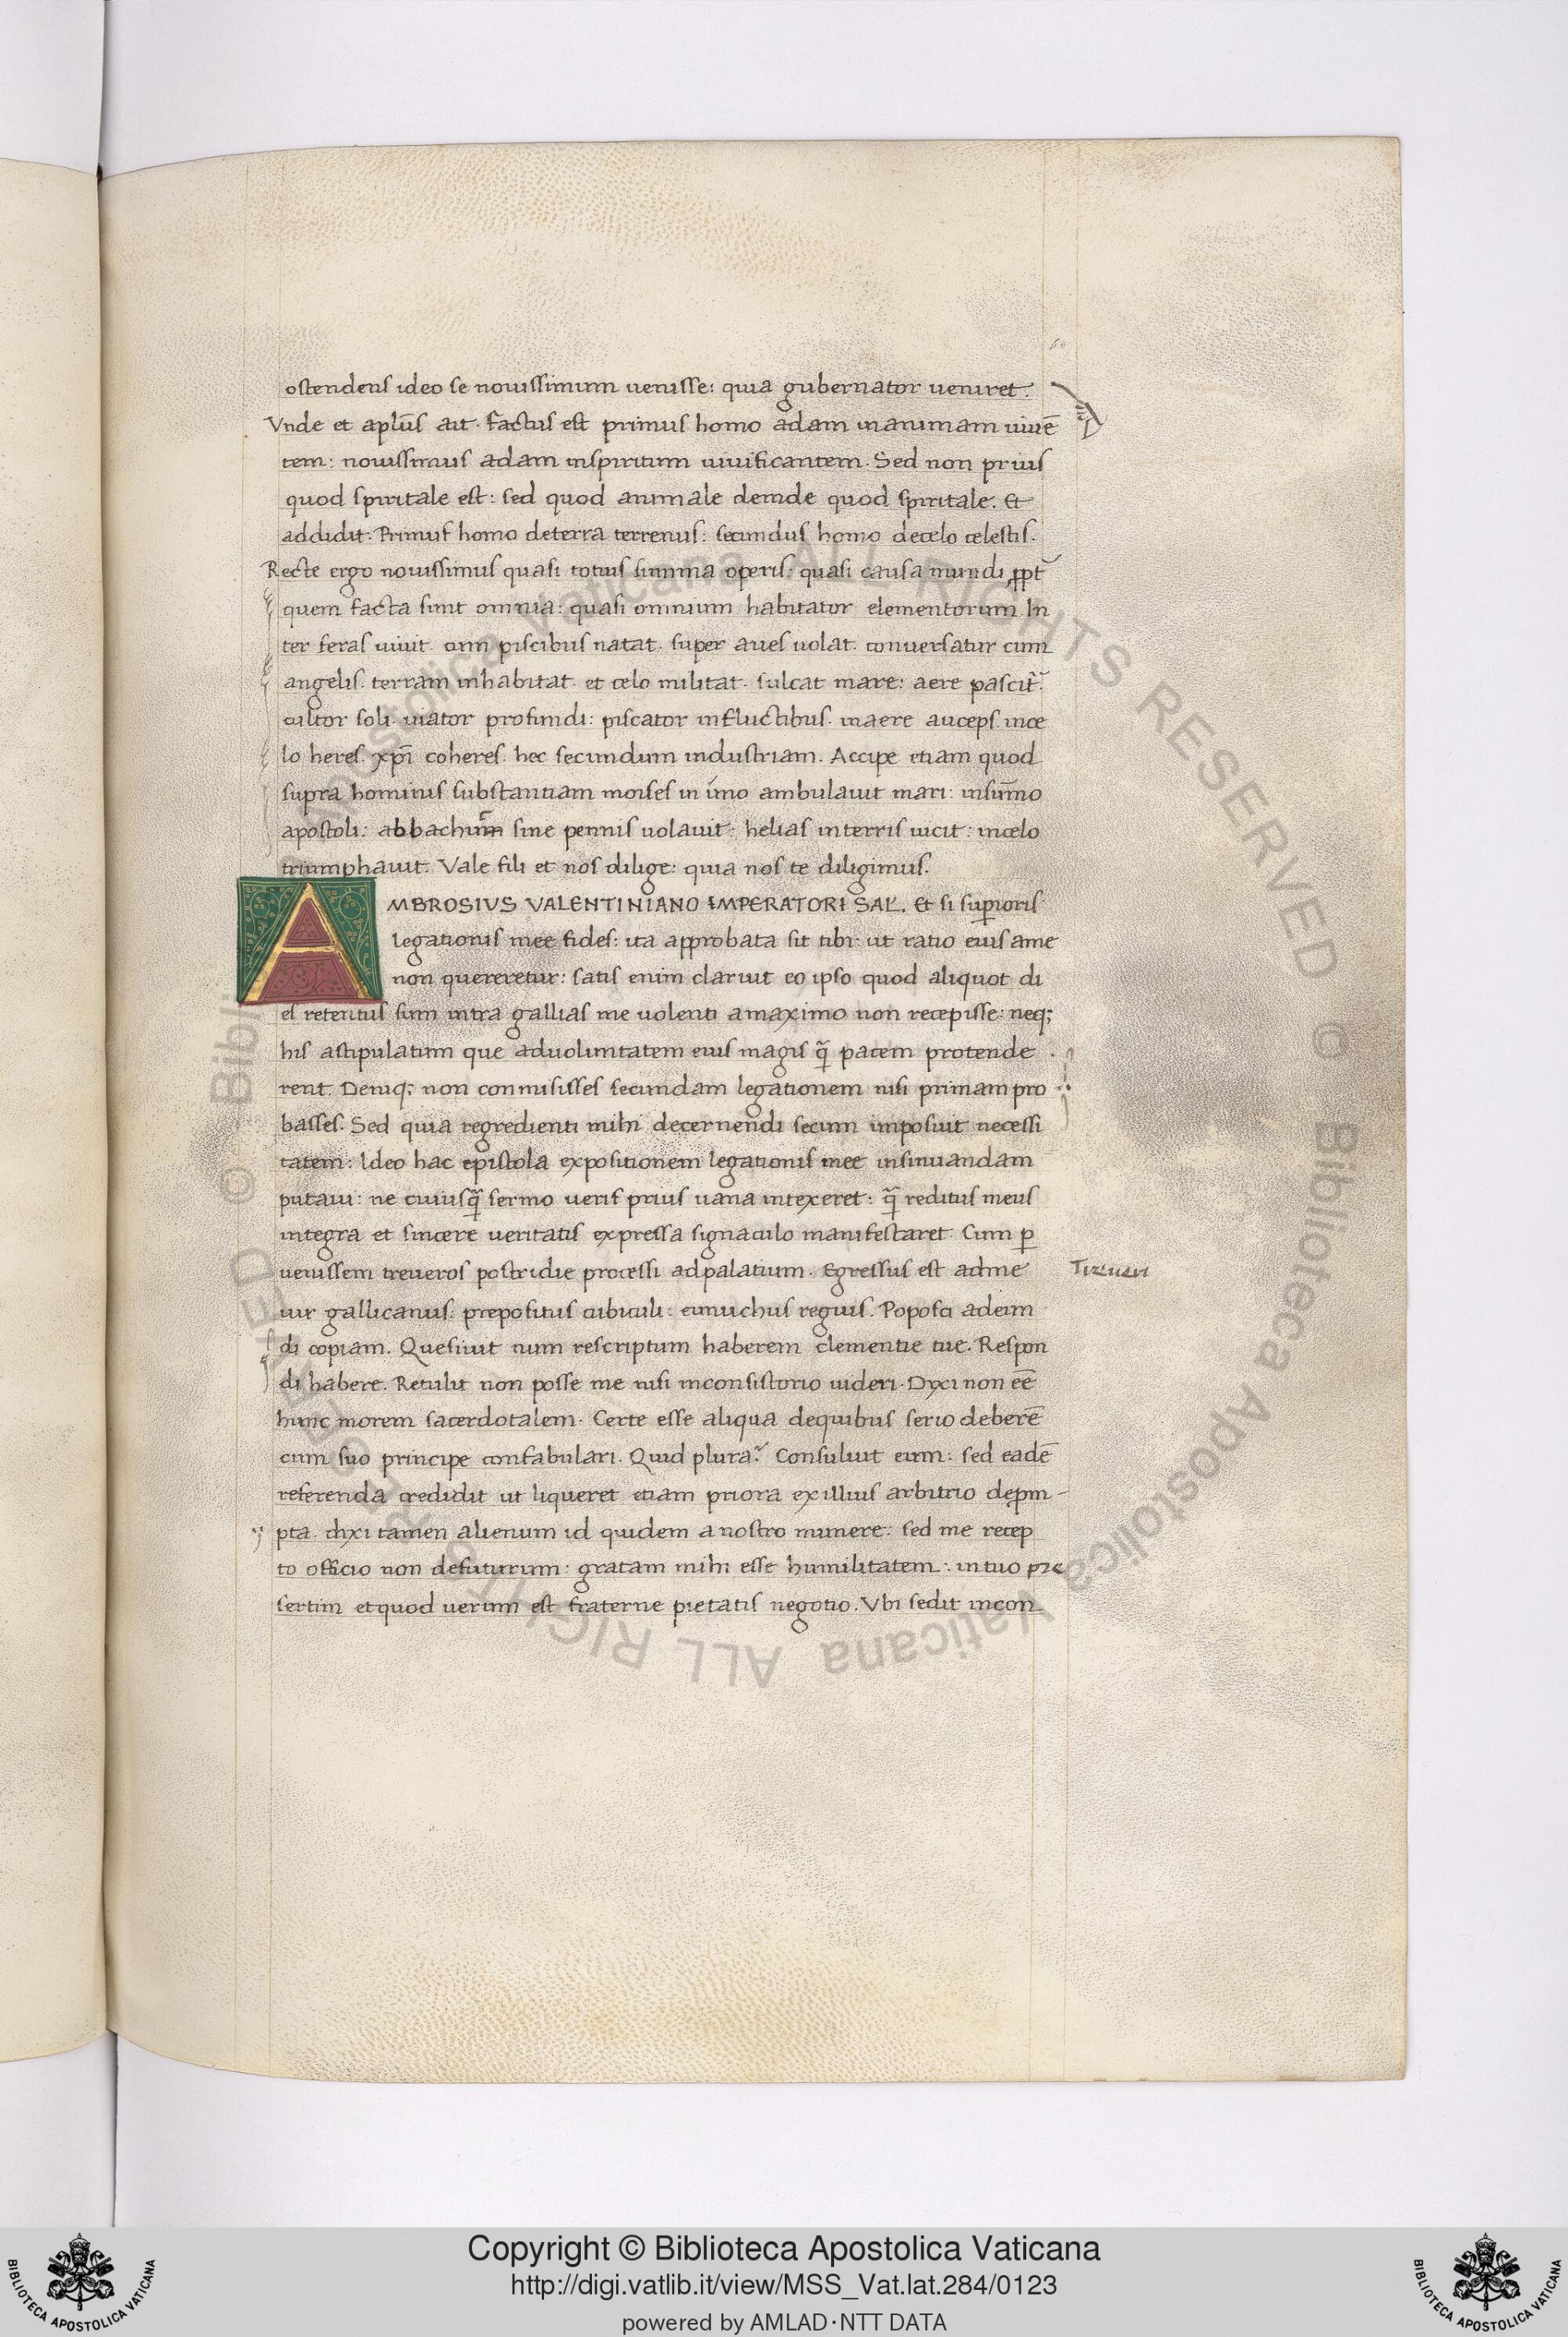 60
ostendens ideo se nouissimum uenisse: quia gubernator ueniret.
Vnde et apl̄us ait. factus est primus homo adam inanimam uiuē
tem: nouissimus adam inspiritum uiuificantem. Sed non prius
quod spiritale est: sed quod animale deinde quod spiritale. Et
addidit. Primus homo deterra terrenus: secundus homo decelo celestis.
Recte ergo nouissimus quasi totius summa operis: quasi causa mundi
quem facta sunt omnia: quasi omnium habitator elementorum. In
ter feras uiuit. cum piscibus natat. super aues uolat. conuersatur cum
angelis. terram inhabitat. et celo militat. sulcat mare: aere pascit᷑.
cultor soli. uiator profundi: piscator influctibus. inaere auceps. ince
lo heres. xp̄i coheres. hec secundum industriam. Accipe etiam quod
supra hominis substantiam moises in imo ambulauit mari: insūmo
apostoli: abbachum sine pennis uolauit: helias interris uicit: incelo
triumphauit. Vale fili et nos dilige: quia nos te diligimus.
AMBROSIVS VALENTINIANO IMPERATORI SAL̄. Et si suꝑioris
legationis mee fides: ita approbata sit tibi: ut ratio eius ame
non quereretur: satis enim claruit eo ipso quod aliquot di
es retentus sum intra gallias me uolenti amaximo non recepisse: neq;
his astipulatum que aduoluntatem eius magis q̄ pacem protende
rent. Deniq; non commisisses secundam legationem nisi primam pro
basses. Sed quia regredienti mihi decernendi secum imposuit necessi
tatem: Ideo hac epistola expositionem legationis mee insinuandam
putaui: ne cuiusq̄ sermo ueris prius uana intexeret: q̄ reditus meus
integra et sincere ueritatis expressa signaculo manifestaret. Cum ꝑ
uenissem treueros postridie processi adpalatium. Egressus est adme
Treueri
uir gallicanus: prepositus cubiculi: eunuchus regius. Poposci adeun
di copiam. Quesiuit num rescriptum haberem clementie tue. Respon
di habere. Retulit non posse me nisi inconsistorio uideri. Dixi non eē
hunc morem sacerdotalem. Certe esse aliqua dequibus serio deberē
cum suo principe confabulari. Quid plura? Consuluit eum: sed eadē
referenda credidit ut liqueret etiam priora exillius arbitrio
pta. dixi tamen alienum id quidem a nostro munere: sed me recep
to officio non defuturum: gratam mihi esse humilitatem: intuo pre
sertim etquod uerum est fraterne pietatis negotio. Vbi sedit incon
© Biblioteca Apostolica Vaticana ALL RIGHTS RESERVED
Copyright © Biblioteca Apostolica Vaticana
http://digi.vatlib.it/view/MSS_Vat.lat.284/0123
powered by AMLAD·NTT DATA
BIBLIOTECA APOSTOLICA VATICANA
BIBLIOTECA APOSTOLICA VATICANA